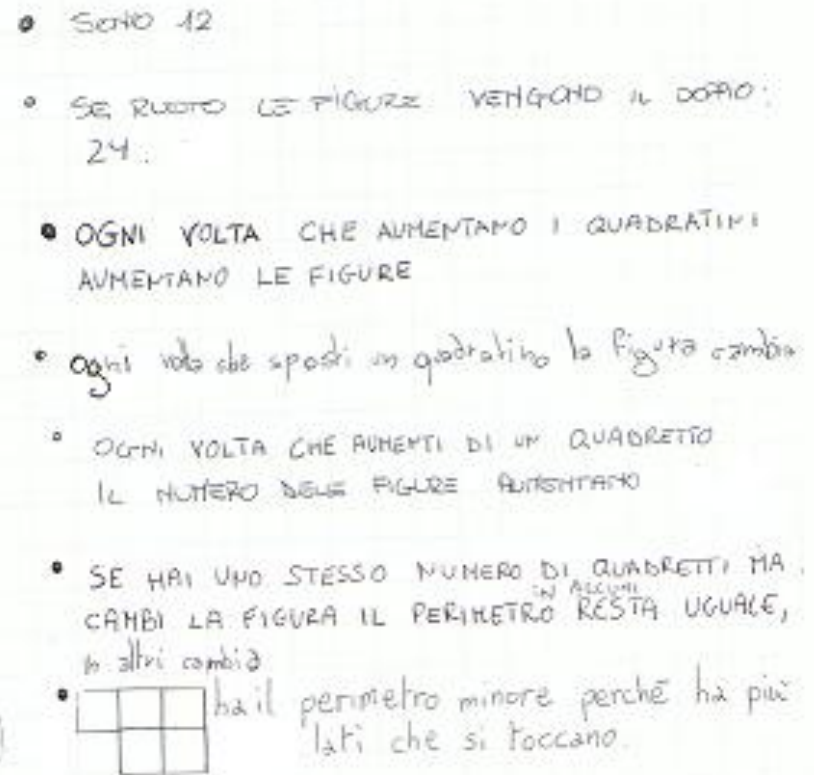 • SONO 12
• SE RUOTO LE FIGURE VENGONO IL DOPPIO:
24.
• OGNI VOLTA CHE AUMENTANO I QUADRATINI
AUMENTANO LE FIGURE
• Ogni volta che sposti un quadratino la figura cambia
• OGNI VOLTA CHE AUMENTI DI UN QUADRETTO
IL NUMERO DELE FIGURE AUMENTANO
• SE HAI UNO STESSO NUMERO DI QUADRETTI MA
IN ALCUNI
CAMBI LA FIGURA IL PERIMETRO RESTA UGUALE,
in altri cambia
• ha il perimetro minore perché ha più
lati che si toccano.